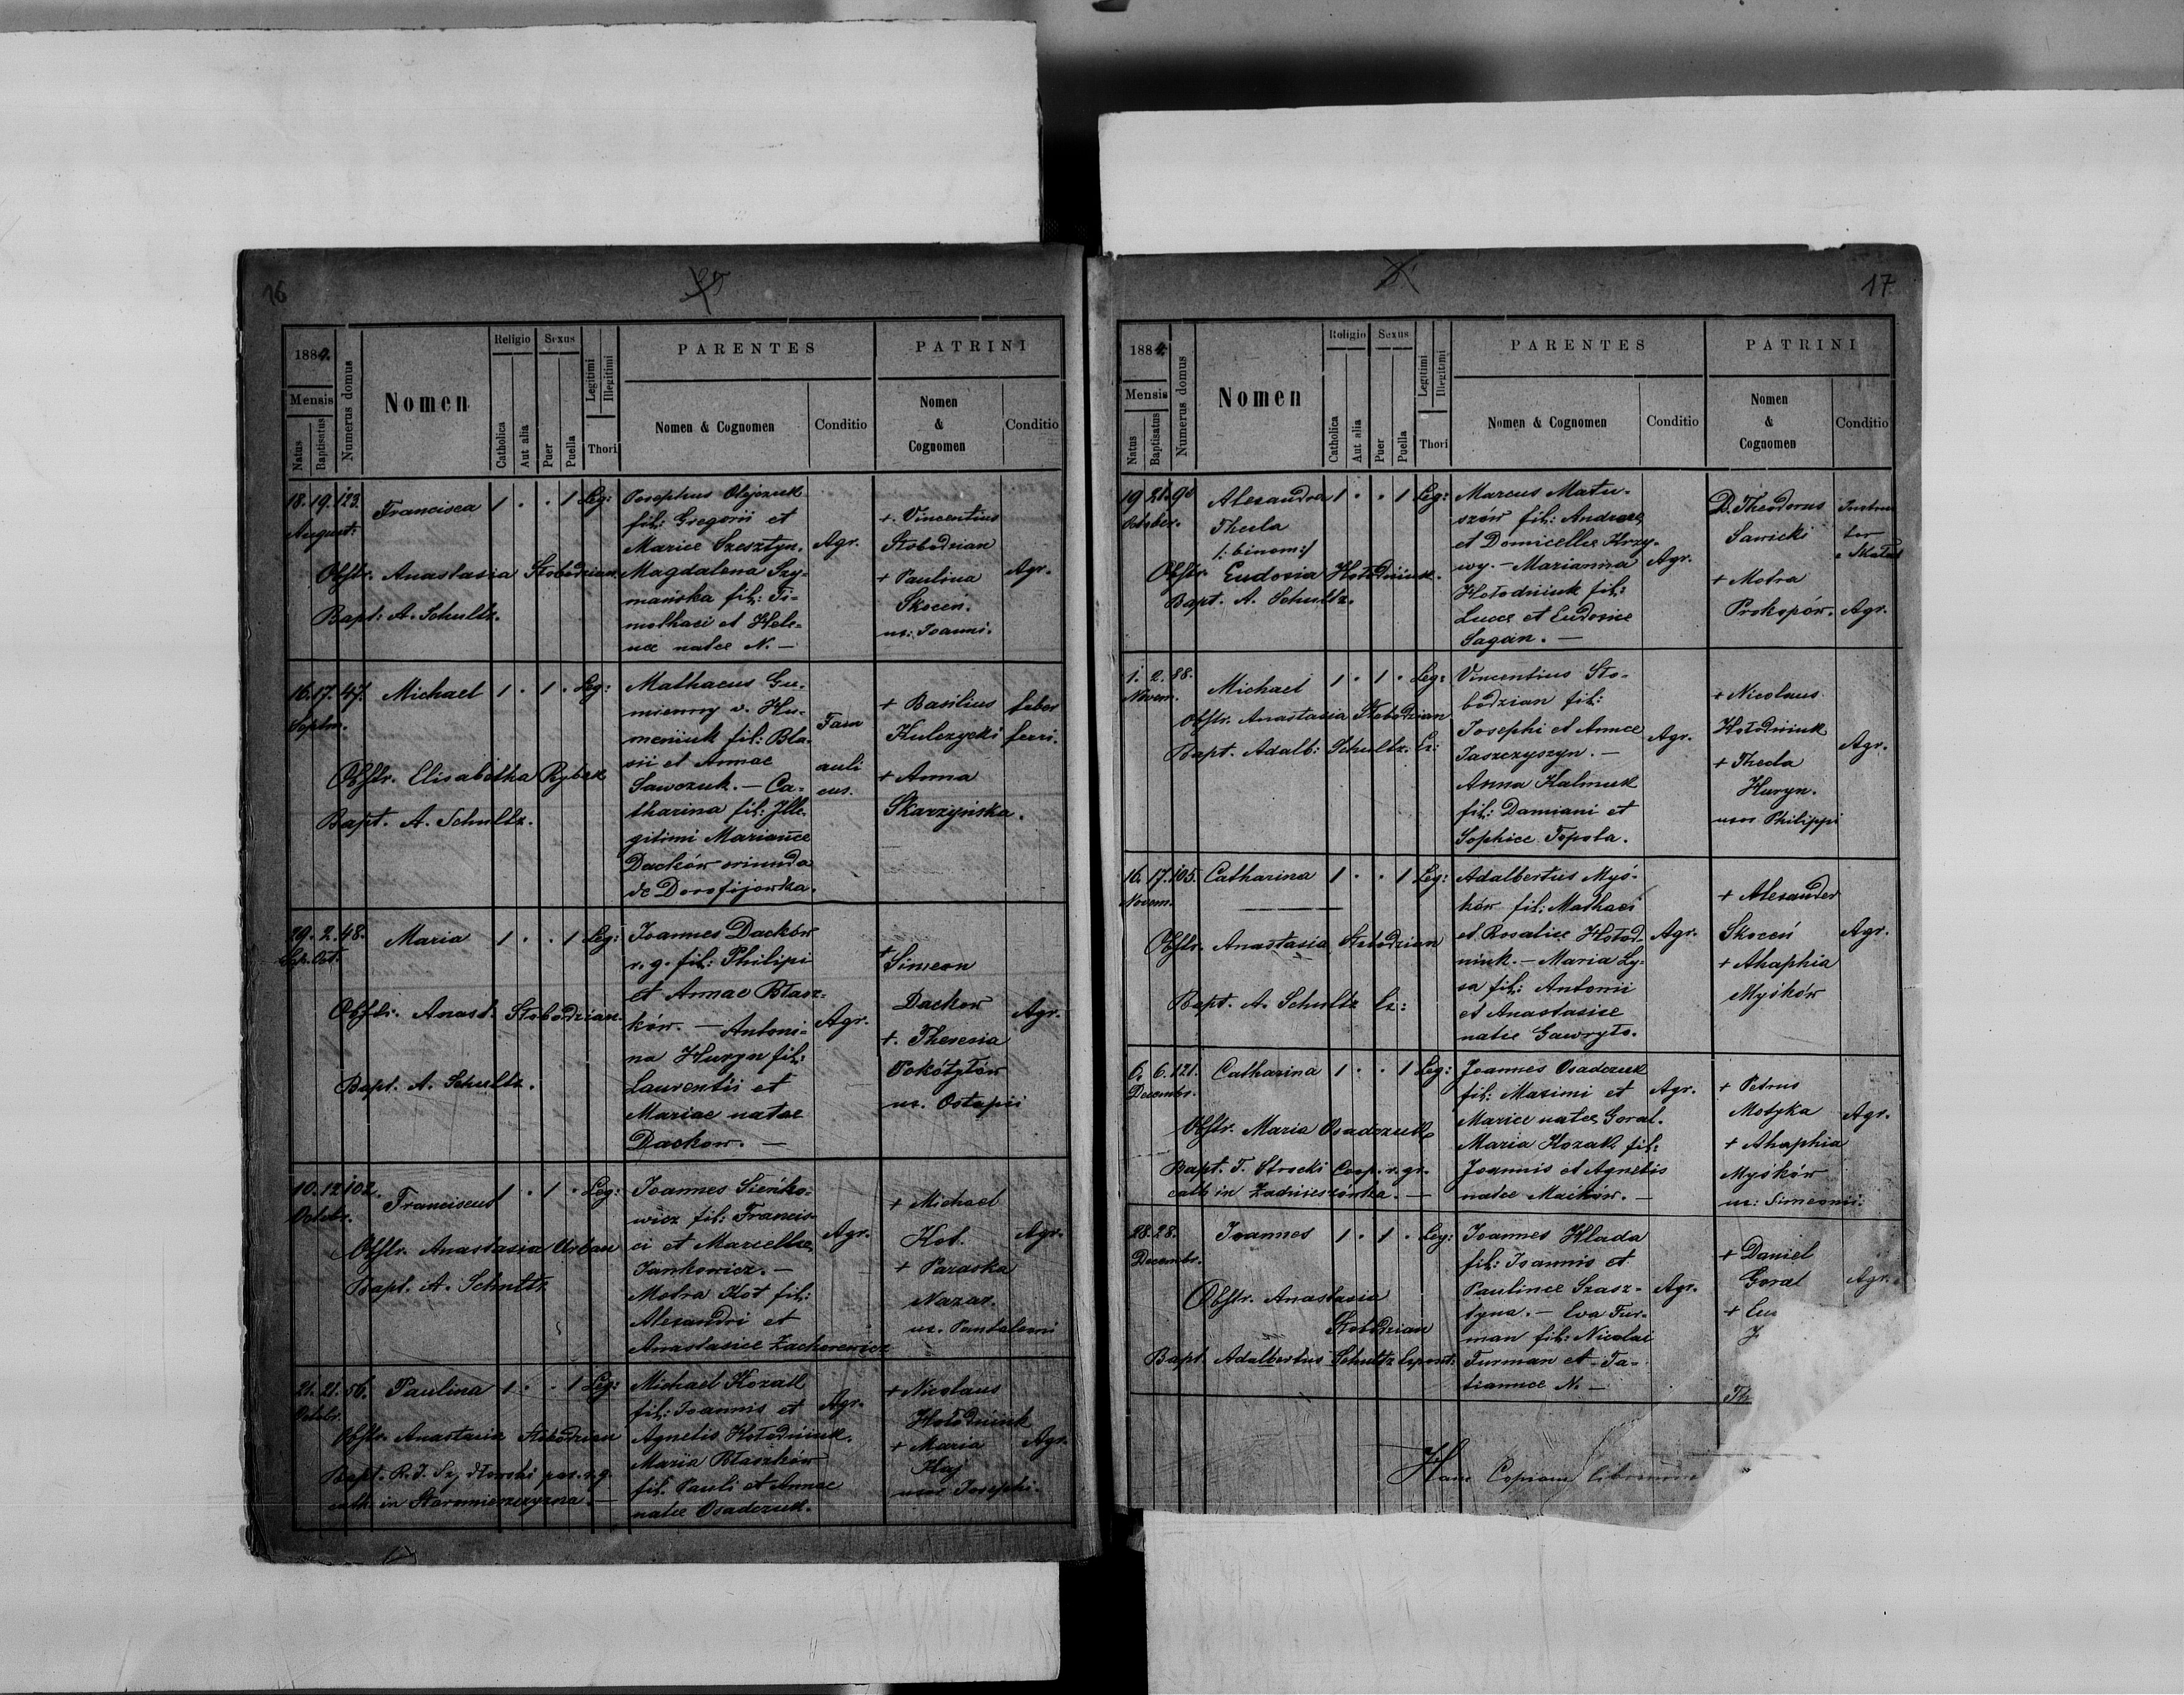 16
1889.
Mensis
Natus
Baptisatus
Numerus domus
Nomen
Religio
Catholica
Aut alia
Sexus
Puer
Puella
Legitimi
Illegitimi
Thori
PARENTES
Nomen & Cognomen
Conditio
PATRINI
Nomen
&
Cognomen
Conditio
18. 19. 123. Francisca 1 . . 1 Leg:
August:
Obstr. Anastasia Słobodzian.
Bapt: A. Schultz.
Josephus Olejczuk
fil: Gregorii et
Mariæ Szesztyn.
Magdalena Szy-
mańska fil: Ti-
mothaei et Hele-
næ natæ N. —
Agr.
+ Vincentius
Słobodzian
+ Paulina
Skoceń.
ux: Joanni.
Agr.
16. 17. 47. Michael 1 . 1 . Leg:
Septm.
Obstr. Elisabetha Rybak
Bapt. A. Schultz.
Mathaeus Gu-
mienny v. Hu-
meniuk fil: Bla-
sii et Annae
Sawczuk. — Ca-
tharina fil: Ille-
gitimi Mariannæ
Daćków oriunda
de Dorofijowka.
Fam
auli
cus.
+ Basilius
Kulczycki
+ Anna
Skarzyńska.
faber
ferri.
29. 2. 48. Maria 1 . . 1 Leg:
Sep. Oct.
Obstr. Anast. Słobodzian.
Bapt. A. Schultz.
Joannes Daćków
r. g. fil: Philipi
et Annae Błasz-
ków. — Antoni-
na Huryn fil:
Laurentii et
Mariae natae
Dackow. —
Agr.
+ Simeon
Dackow
+ Theresia
Pokótyłów
ux. Ostapii
Agr.
10. 12. 102. Franciscus 1 . 1 . Leg:
Octobr.
Obstr. Anastasia Urban
Bapt. A. Schultz
Joannes Sieńko-
wicz fil: Francis-
ci et Marcellæ
Jankowicz. —
Motra Kot fil:
Alexandri et
Anastasiæ Zacharewicz
Agr.
+ Michael
Kot.
+ Paraska
Nazar.
ux. Pantaleoni
Agr.
21. 21. 56. Paulina 1 . . 1 Leg:
Octobr.
Obstr. Anastasia Słobodzian
Bapt. R. J. par. r. g.
cath. in Staromiejszczyzna. —
Michael Kozak
fil: Joannis et
Agnetis Hołodniuk.
Maria Błaszków
fil. Pauli et Annae
natæ Osadczuk.
Agr.
+ Nicolaus
Hołodniuk
+ Maria
Haj
uxor Josephi.
Agr.
17
1889.
Mensis
Natus
Baptisatus
Numerus domus
Nomen
Religio
Catholica
Aut alia
Sexus
Puer
Puella
Legitimi
Illegitimi
Thori
PARENTES
Nomen & Cognomen
Conditio
PATRINI
Nomen
&
Cognomen
Conditio
19 21. 90 Alexandra 1 . . 1 Leg:
October.
Thecla
/: binom:/
Obstr. Eudoxia Hołodniuk.
Bapt. A. Schultz.
Marcus Matu-
szów fil: Andreæ
et Domicellæ Krzy-
wy. — Marianna
Hołodniuk fil:
Lucæ et Eudoxiæ
Sagan. —
Agr.
D. Theodorus
Sawicki
+ Motra
Prokopów.
Instruc
tor
Agr.
1. 2. 88. Michael 1 . 1 . Leg:
Novem.
Obstr. Anastasia Słobodzian
Bapt. Adalb: Schultz. Ex:
Vincentius Sło-
bodzian fil:
Josephi et Annæ
Jaszczyszyn. —
Anna Kalmuk
fil: Damiani et
Sophiæ Topola.
Agr.
+ Nicolaus
Hołodniuk
+ Thecla
Huryn.
uxor Philippi
Agr.
16. 17. 105. Catharina 1 . . 1 Leg:
Novem.
Obstr. Anastasia Słobodzian
Bapt. A. Schultz Ex:
Adalbertus Myś-
ków fil: Mathaei
et Rosaliæ Hołod-
niuk. — Maria Ły-
sa fil: Antonii
et Anastasiæ
natæ Gawryło.
Agr.
+ Alexander
Skoceń
+ Ahaphia
Myśków
Agr.
6. 6. 121. Catharina 1 . . 1 Leg:
Decembr.
Obstr. Maria Osadczuk
Bapt. T. Strocki Coop. r. gr.
cath in Zadnieszówka. —
Joannes Osadczuk
fil: Maximi et
Mariæ natæ Goral.
Maria Kozak fil:
Joannis et Agnetis
natæ Maćkow. —
Agr.
+ Petrus
Motyka
+ Ahaphia
Myśków
ux: Simeonis.
Agr.
28. 28. Joannes 1 . 1 . Leg:
Decembr.
Obstr. Anastasia
Słobodzian
Bapt. Adalbertus Schultz Expost:
Joannes Hlada
fil: Joannis et
Paulinæ Szasz-
tyna. — Eva Fur-
man fil: Nicolai
Furman et Ta-
tiannæ N. —
Agr.
+ Daniel
Goral
Agr.
Hanc Copiam librorum